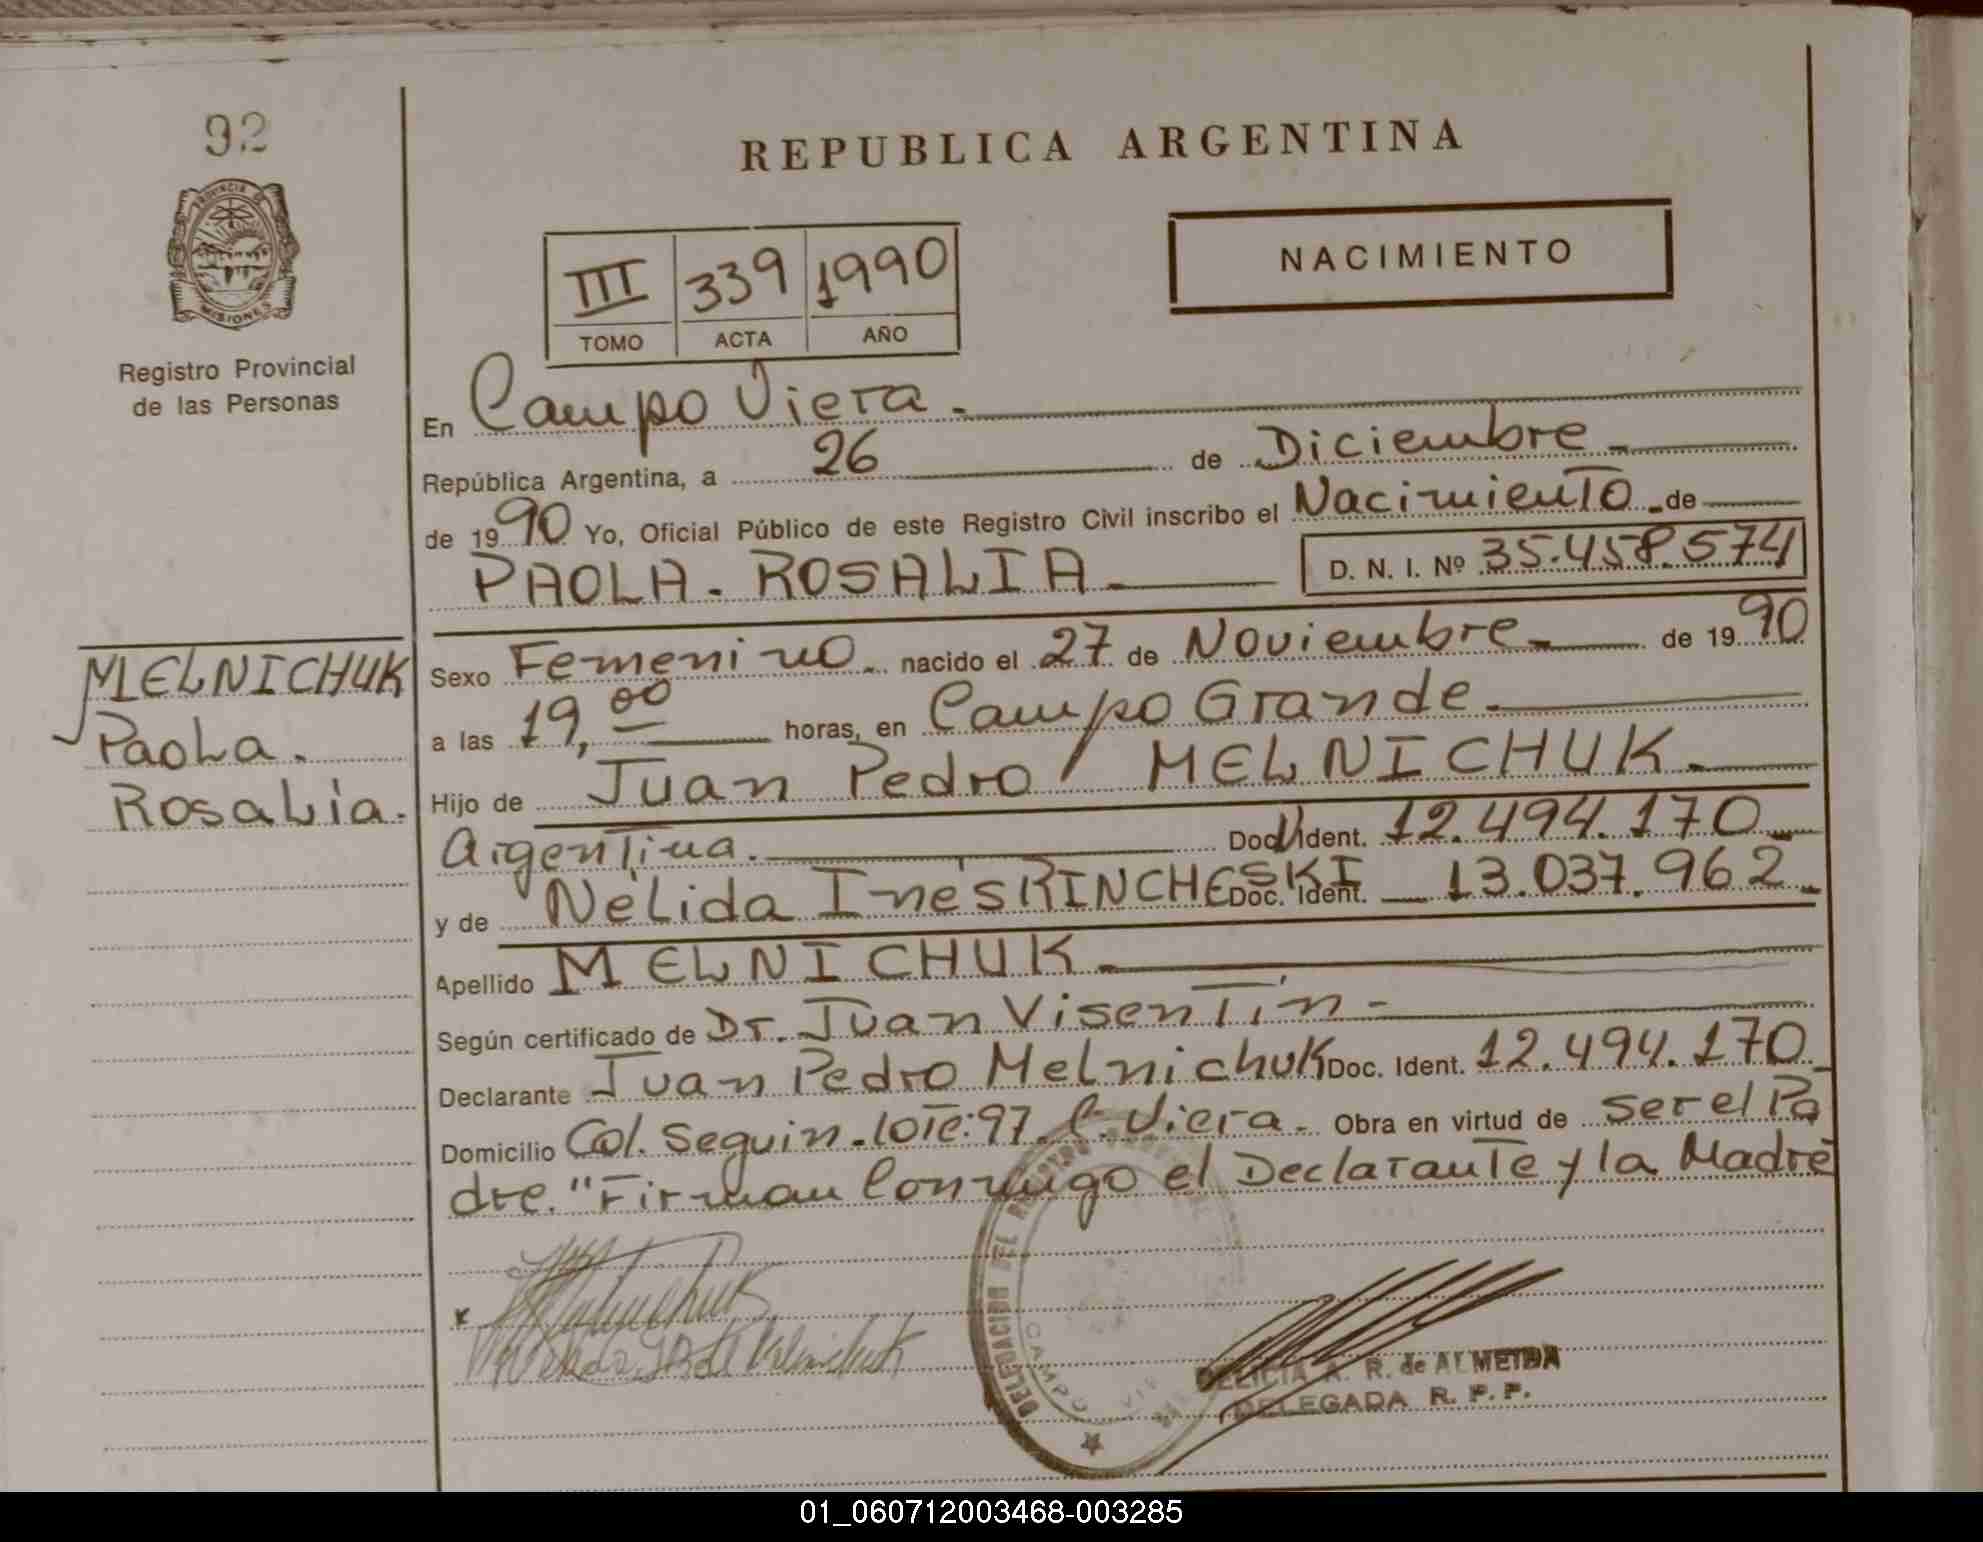 92
REPUBLICA ARGENTINA
PROVINCIA DE
MISIONES
Registro Provincial
de las Personas
III 339 1990
TOMO ACTA AÑO
NACIMIENTO
En Campo Viera.
República Argentina, a 26 de Diciembre
de 1990 Yo, Oficial Público de este Registro Civil inscribo el Nacimiento de
PAOLA. ROSALIA. D. N. I. Nº 35.458.574
MELNICHUK
Paola.
Rosalia.
Sexo Femenino. nacido el 27 de Noviembre de 1990
a las 19,00 horas, en Campo Grande.
Hijo de Juan Pedro MELNICHUK.
Argentina. Doc. Ident. 12.494.170
y de Nélida Inés RINCHESKI Doc. Ident. 13.037.962
Apellido MELNICHUK.
Según certificado de Dr. Juan Visentín
Declarante Juan Pedro Melnichuk Doc. Ident. 12.494.170
Domicilio Col. Seguin. lote: 97. C. Viera. Obra en virtud de ser el Pa
dre. "Firman Conmigo el Declarante y la Madre
DELEGACION DEL REGISTRO
CAMPO
DELICIA A. R. de ALMEIDA
DELEGADA R. P. P.
01_060712003468-003285